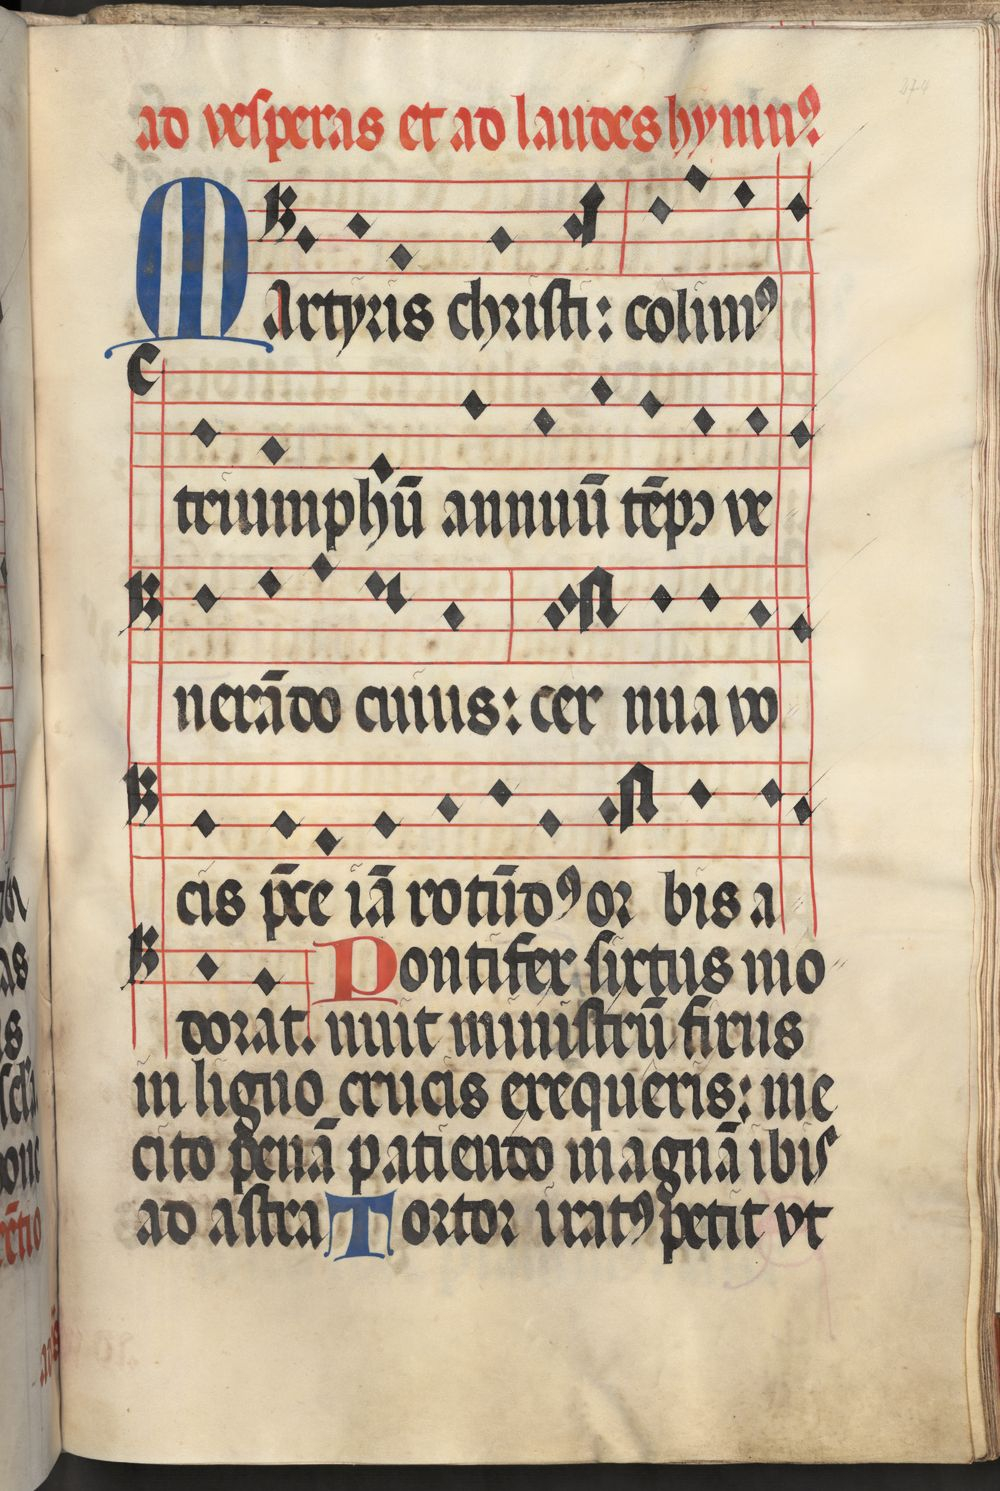 ad vesperas et ad laudes hymnꝰ.
Martyris christi: colimꝰ
triumphū annuū tēpꝯ ve
nerādo cuius: cer nua vo
cis p̄ce iā rotūdꝰ or bis a
dorat. Pontifex sixtus mo
nuit ministrū fixus
in ligno crucis exequeris: me
cito penā patiendo magnā ibis
ad astra Tortor iratꝰ petit vt